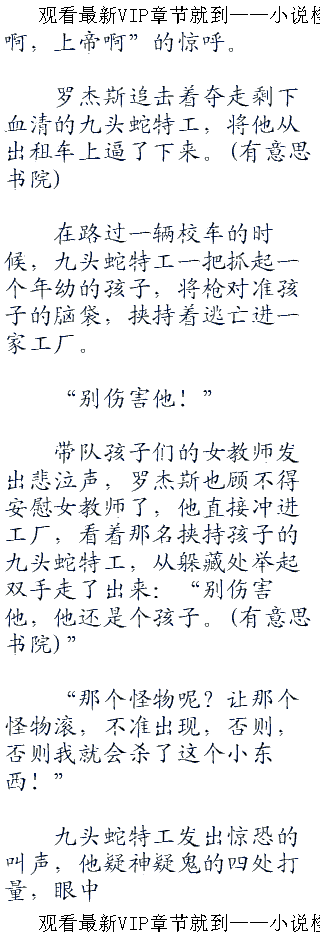 观看最新VIP章节就到——小说楼
啊，上帝啊”的惊呼。
罗杰斯追击着夺走剩下
血清的九头蛇特工，将他从
出租车上逼了下来。(有意思
书院)
在路过一辆校车的时
候，九头蛇特工一把抓起一
个年幼的孩子，将枪对准孩
子的脑袋，挟持着逃亡进一
家工厂。
“别伤害他！”
带队孩子们的女教师发
出悲泣声，罗杰斯也顾不得
安慰女教师了，他直接冲进
工厂，看着那名挟持孩子的
九头蛇特工，从躲藏处举起
双手走了出来：“别伤害
他，他还是个孩子。(有意思
书院)”
“那个怪物呢？让那个
怪物滚，不准出现，否则，
否则我就会杀了这个小东
西！”
九头蛇特工发出惊恐的
叫声，他疑神疑鬼的四处打
量，眼中
观看最新VIP章节就到——小说楼